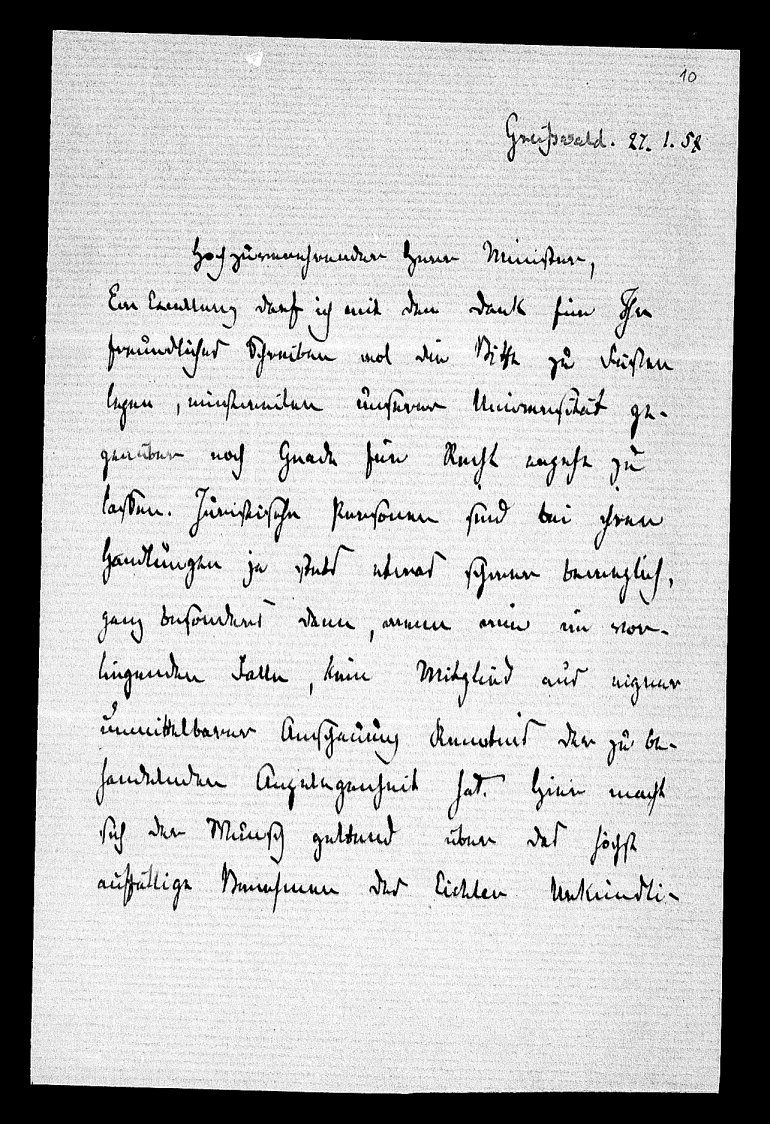 10
Greifswald. 27. 1. 58
Hochzuverehrender Herr Minister,
Ew Excellenz darf ich mit dem Dank für Ihr
freundliches Schreiben wol die Bitte zu Füßen
legen, einstweilen unserer Universität ge-
genüber noch Gnade für Recht ergehn zu
lassen. Juristische Personen sind bei ihren
Handlungen ja stets etwas schwer beweglich,
ganz besonders dann, wenn wie im vor-
liegenden Falle, kein Mitglied aus eigner
unmittelbarer Anschauung Kenntnis der zu be-
handelnden Angelegenheit hat. Hier macht
sich der Wunsch geltend über das höchst
auffällige Benehmen des Eichler Urkundli-